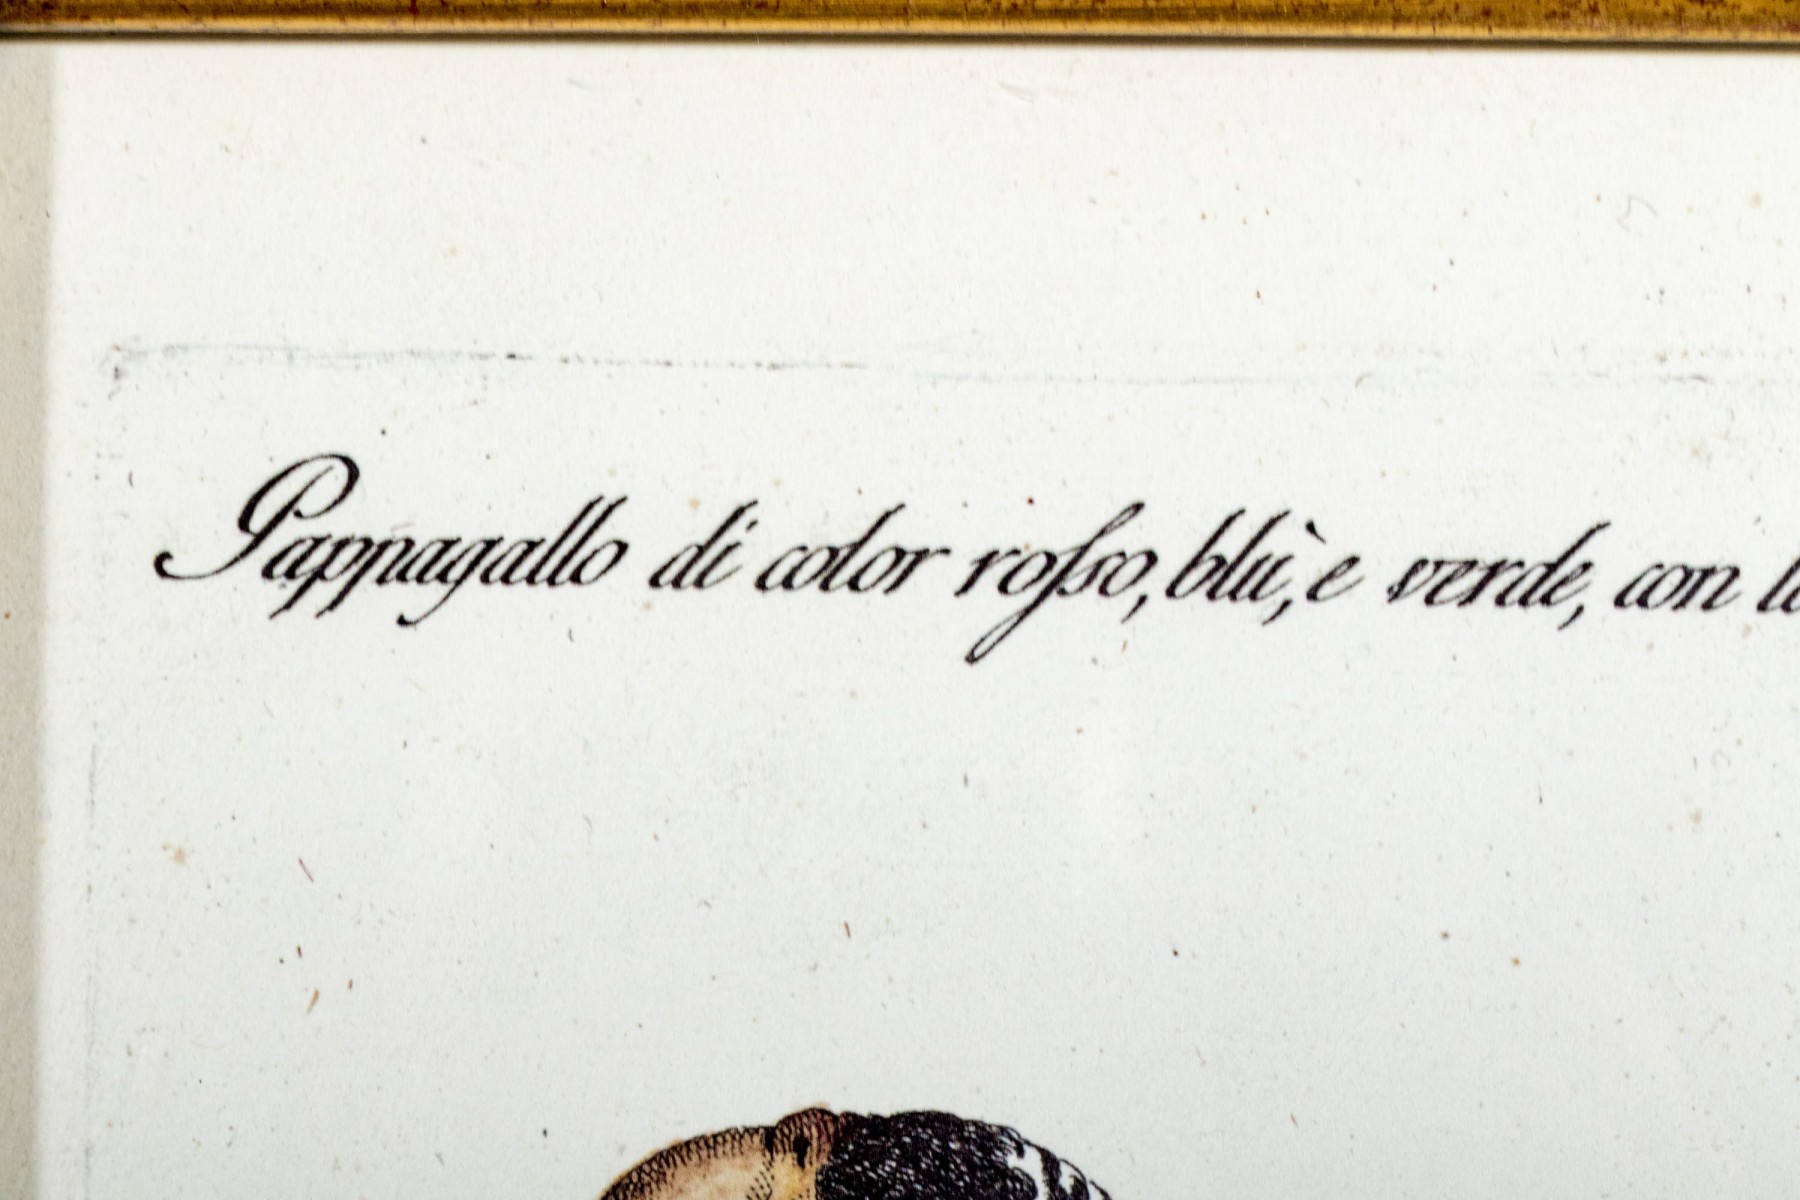 Pappagallo di color roſso, blù, e verde, con